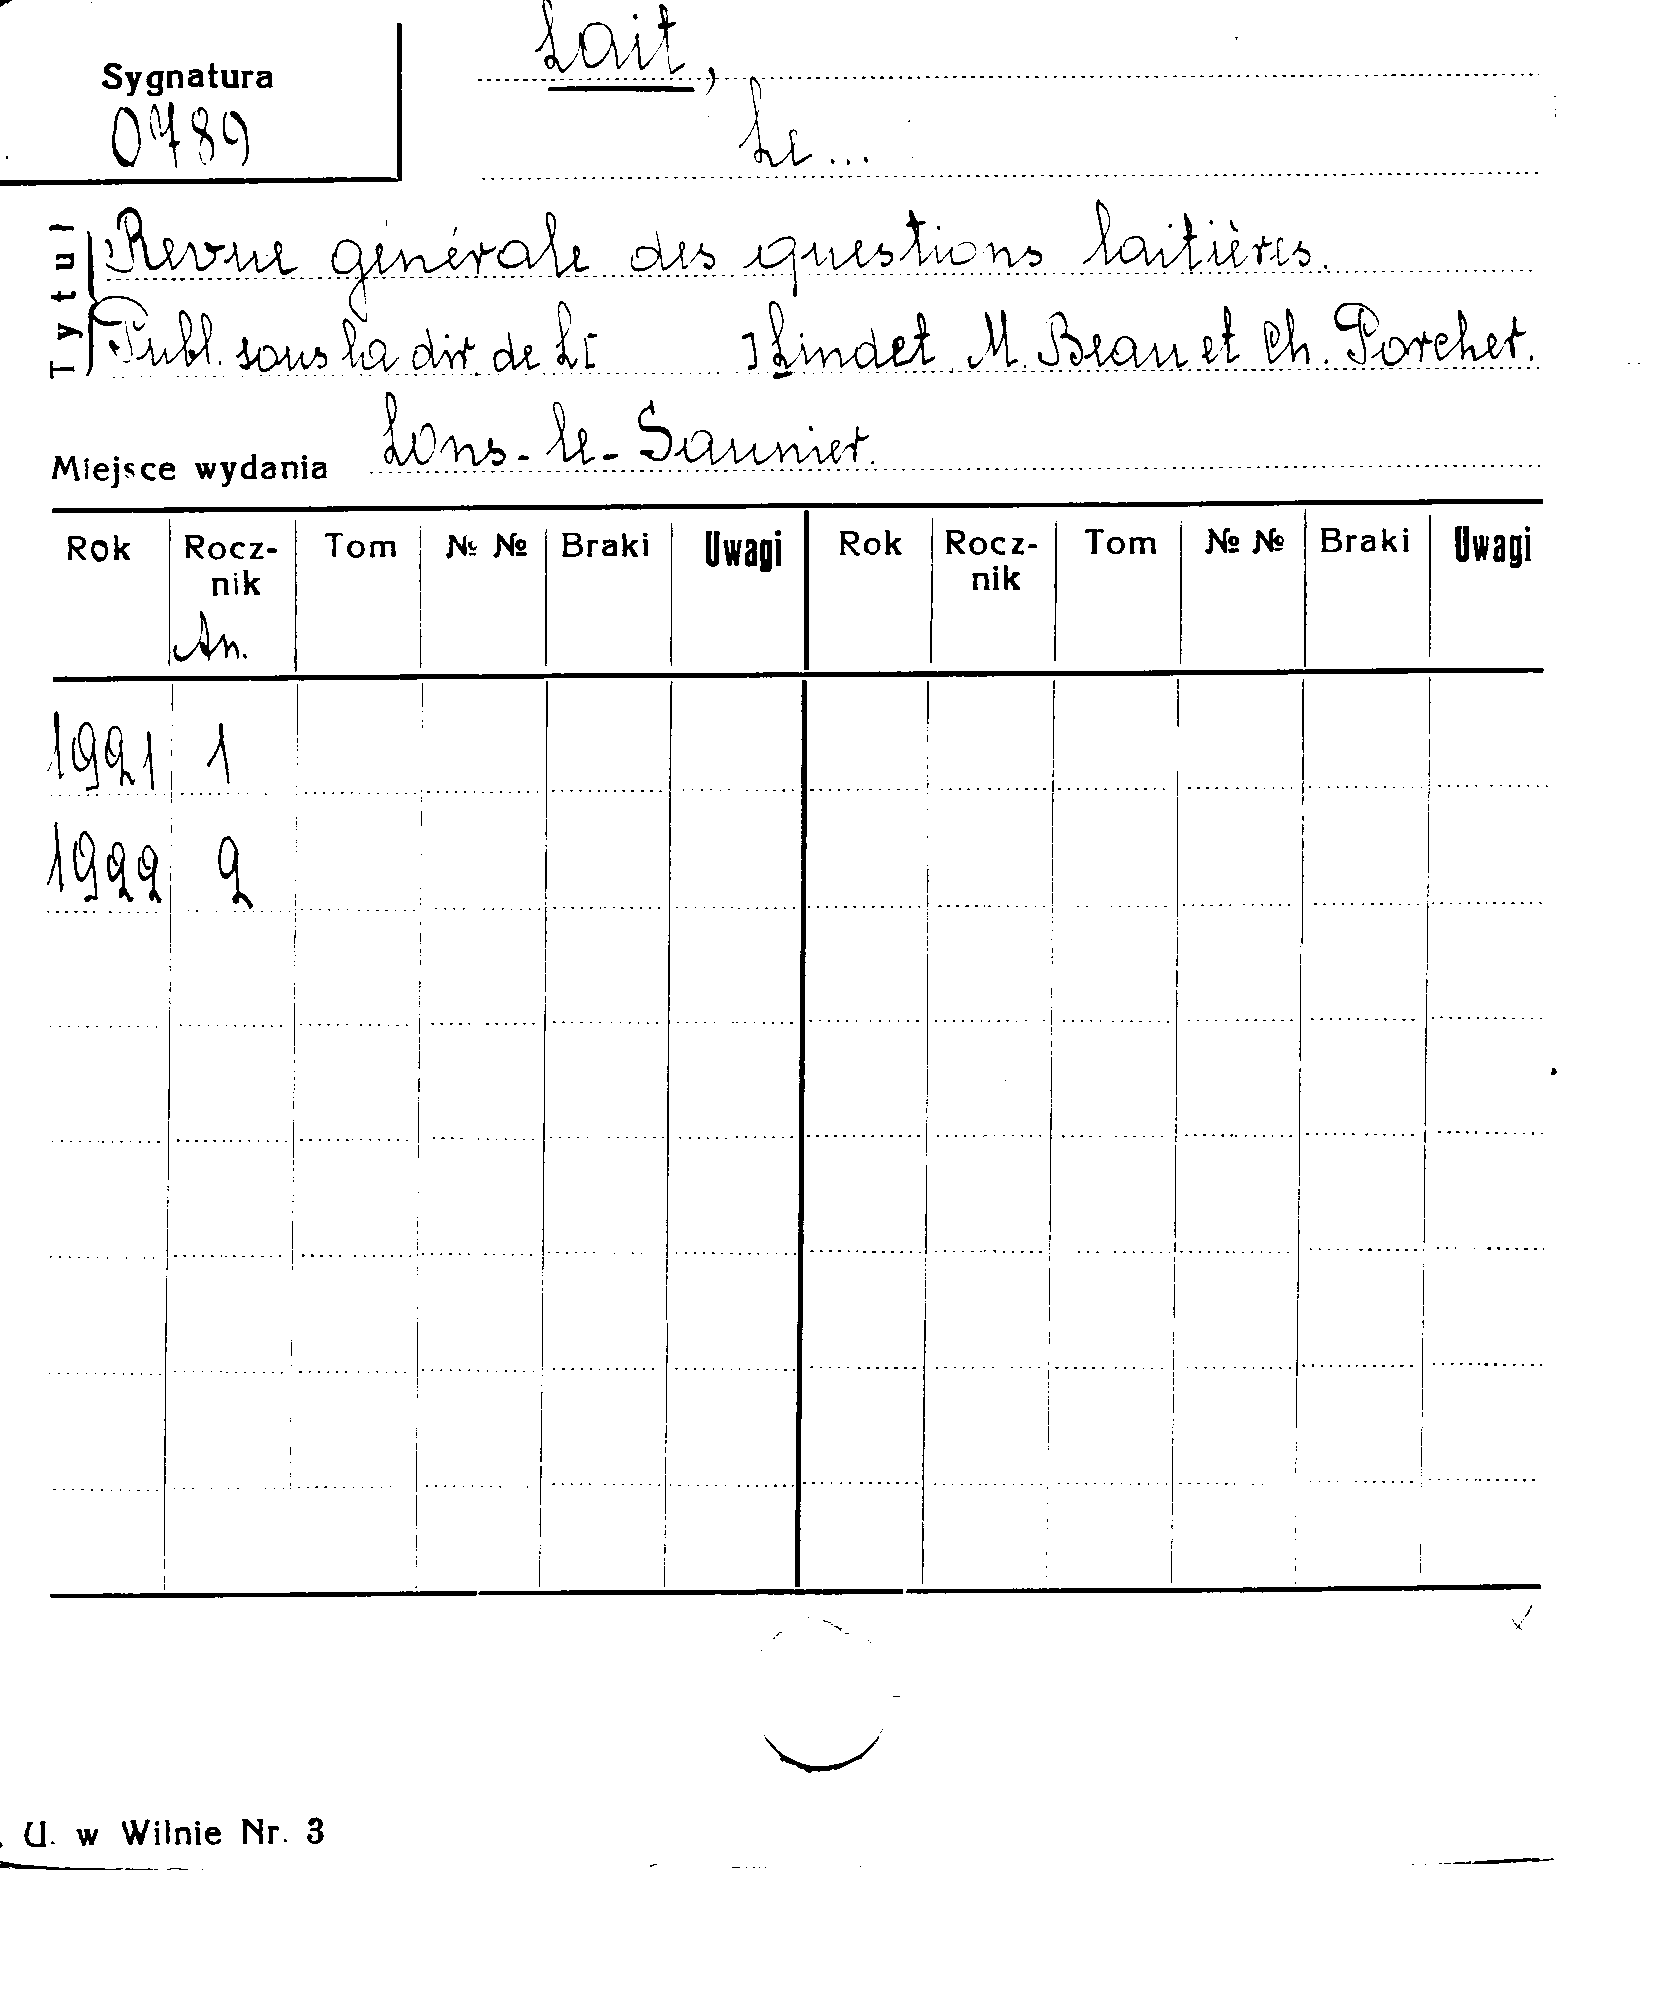 Lait,
Sygnatura
0789
Le...
Tytuł
Revue générale des questions laitières.
Publ. sous la dir. de L[ ] Lindet M. Beau et Ch. Porcher.
Miejsce wydania Lons-le-Saunier.
Rok Rocz-nik Tom № № Braki Uwagi Rok Rocz-nik Tom № № Braki Uwagi
An.
1921 1
1922 2
U. w Wilnie Nr. 3